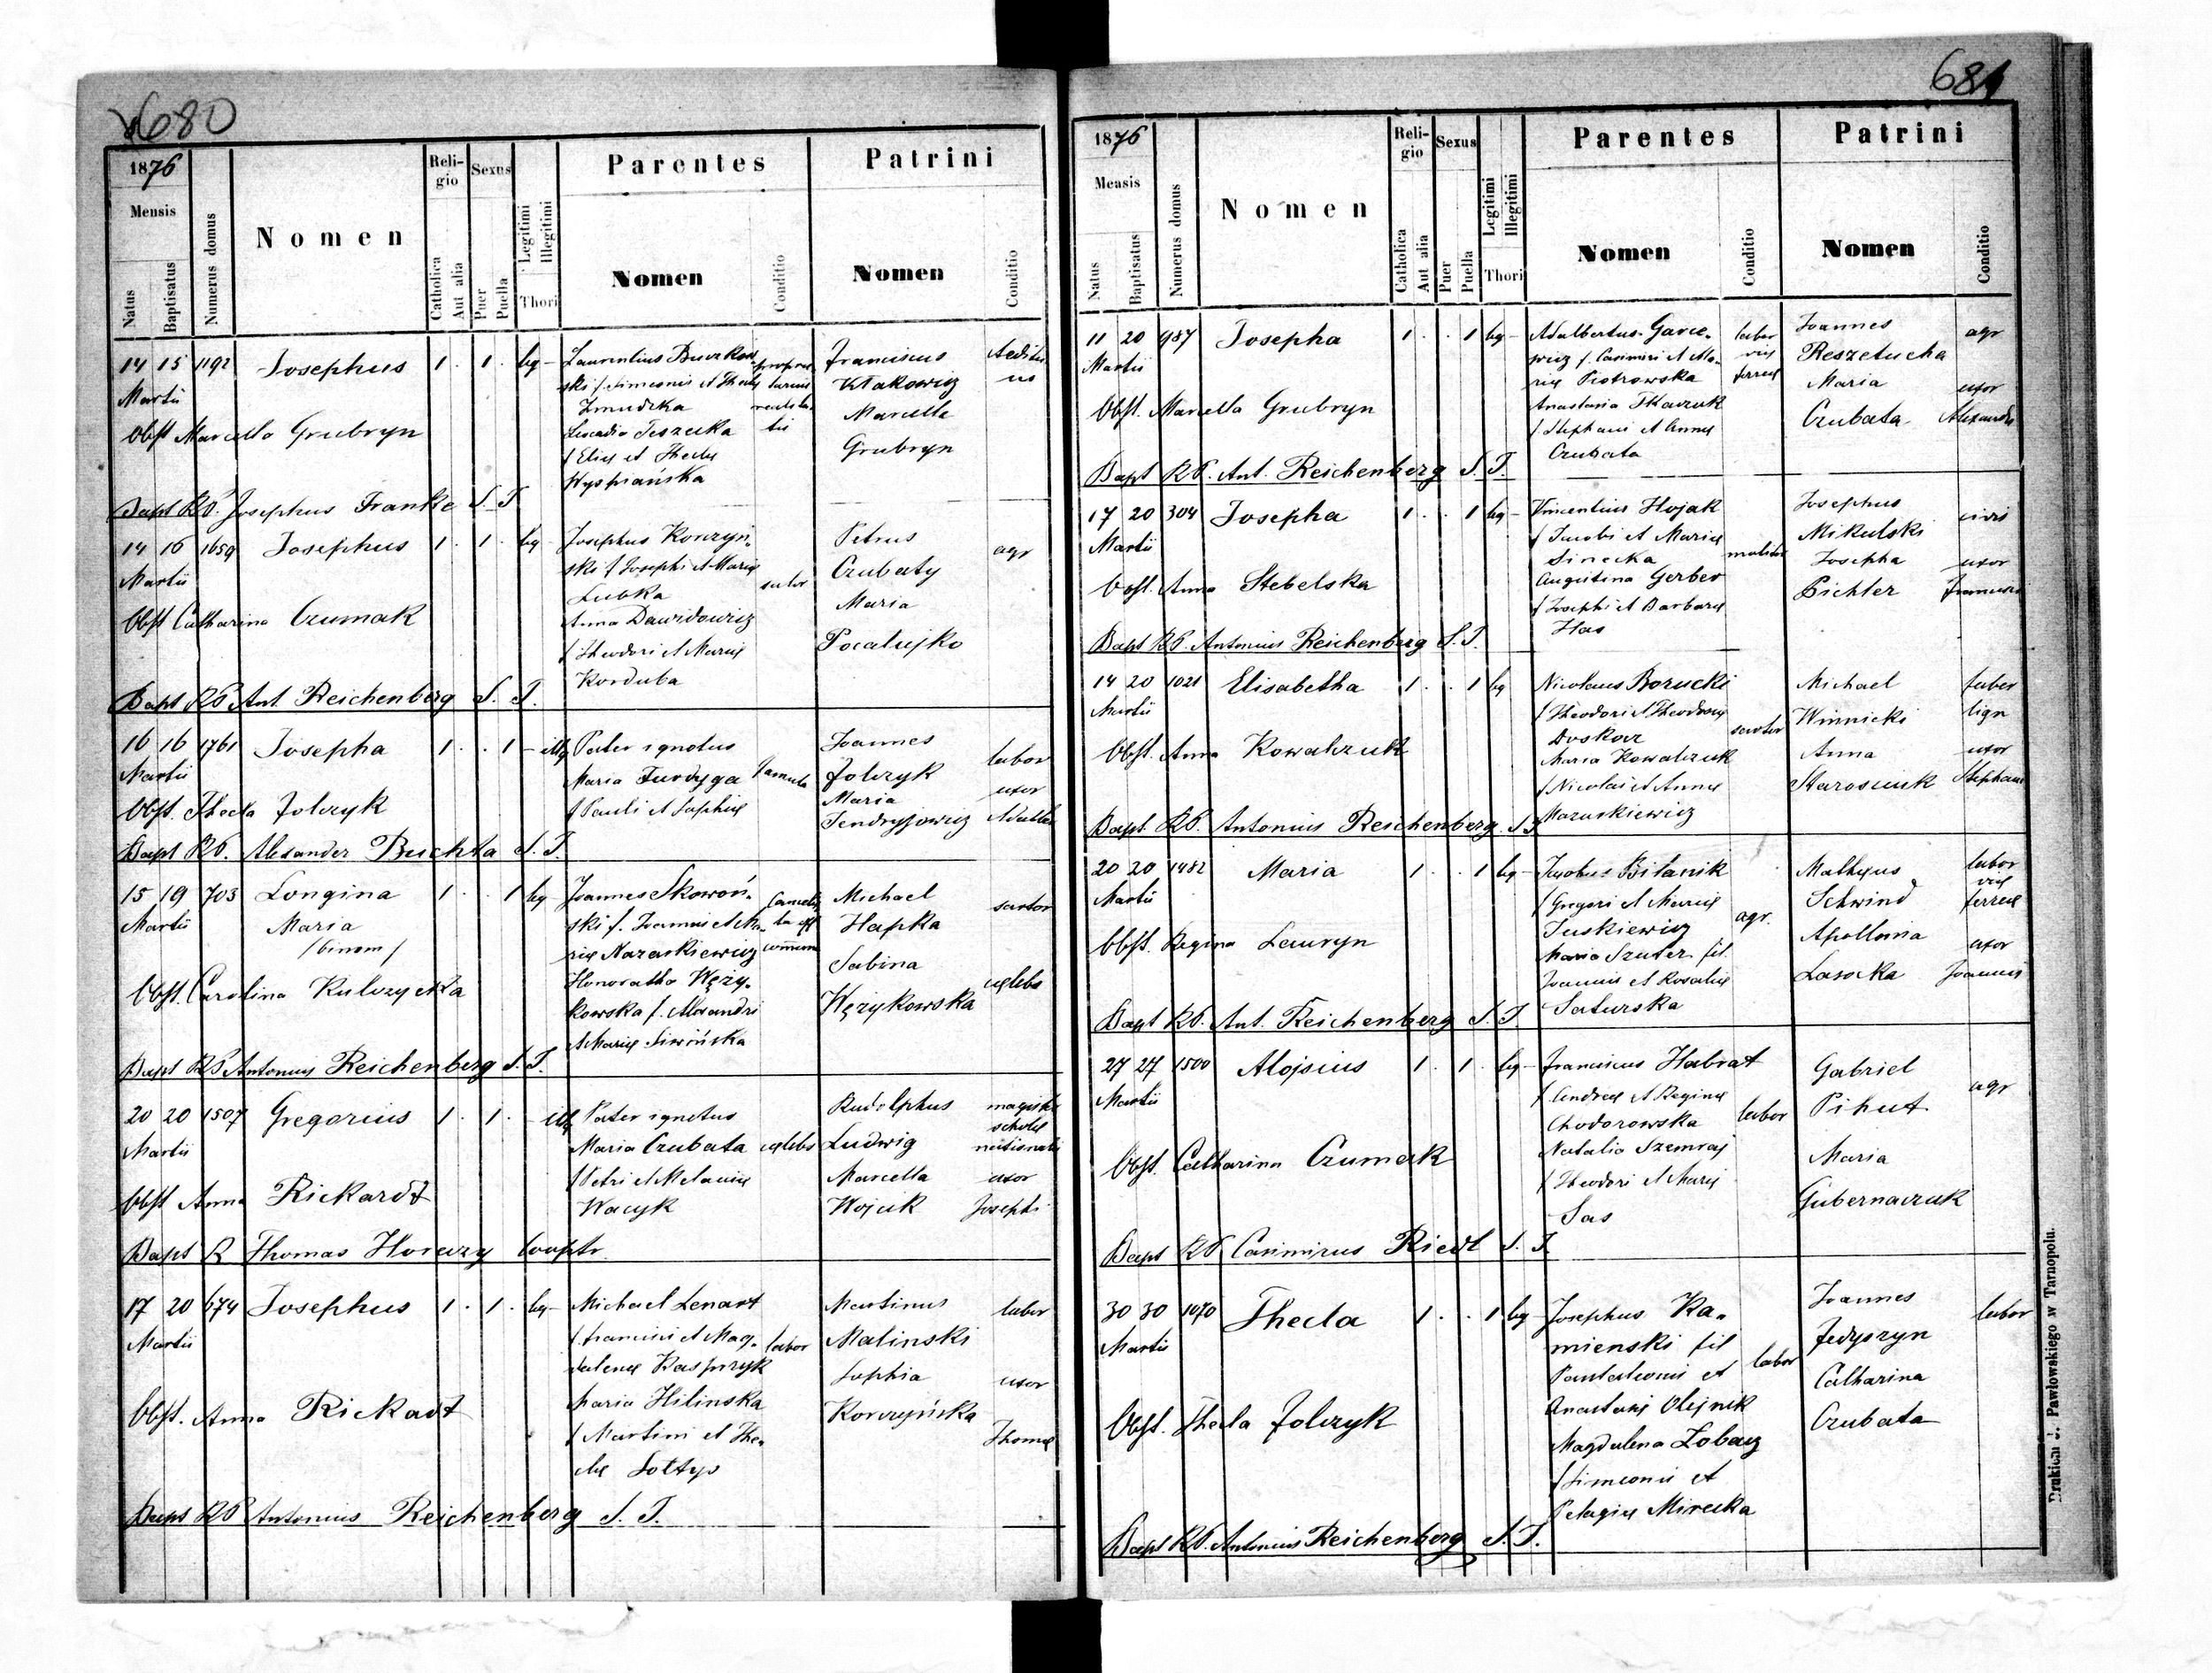 680
1876
Mensis
Natus
Baptisatus
Numerus domus
Nomen
Religio
Catholica
Aut alia
Sexus
Puer
Puella
Legitimi
Illegitimi
Thori
Parentes
Nomen
Conditio
Patrini
Nomen
Conditio
14 15 1192 Josephus 1 . 1 . leg -
Martii
Obst Marcella Grubryn
ski f. Simeonis et Theclę
Żmudzka
f Elię et Theclę
Wyspiańska
Franciscus
Kłakowicz
Marcella
Grubryn
Bapt RP. Josephus Franke S. J.
14 16 1659 Josephus 1 . 1 . leg
Martii
Obst Catharina Czumak
Josephus Korzyn-
ski f Josephi et Marię
Lubka
Anna Dawidowicz
f Theodori et Marię
Korduba
sutor
Petrus
Czubaty
Maria
Pocałujko
agr
Bapt RP Ant. Reichenberg S. J.
16 16 1761 Josepha 1 . . 1 - illg
Martii
Obst. Thecla Jolczyk
Pater ignotus
Maria Furdyga
f Pauli et Sophię
famula
Joannes
Jolczyk
Maria
labor
uxor
Bapt RP. Alexander Buchta S. J.
15 19 703 Longina 1 . . 1 leg -
Martii Maria
/binom/
Obst. Carolina Kulczycka
Joannes Skowoń-
ski f. Joannis et Ma-
rię Nazarkiewicz
Honoratha Węży-
kowska f. Alexandri
et Marię Siwińska
Michael
Hapka
Sabina
Wężykowska
sartor
cęlebs
Bapt RP Antonius Reichenberg S. J.
20 20 1507 Gregorius 1 . 1 . - illg
Martii
Obst Anna Rickardt
Pater ignotus
Maria Czubata cęlebs
f Petri et Melanię
Wacyk
Rudolphus
Ludwig
Marcella
Wojcik
uxor
Josephi
Bapt R Thomas Horaczy cooptr.
17 20 674 Josephus 1 . 1 . leg -
Martii
Obst. Anna Rickadt
Michael Lenart
f Francisci et Mag-
dalenę Kasprzyk
Maria Hilinska
f Martini et The-
clę Sołtys
labor
Martinus
Malinski
Sophia
Korczyńska
labor
uxor
Thomę
Bapt RP Antonius Reichenberg S. J.
681
1876
Mensis
Natus
Baptisatus
Numerus domus
Nomen
Religio
Catholica
Aut alia
Sexus
Puer
Puella
Legitimi
Illegitimi
Thori
Parentes
Nomen
Conditio
Patrini
Nomen
Conditio
11 20 987 Josepha 1 . . 1 leg -
Martii
Obst. Marcella Grubryn
Adalbertus Gavce-
wicz f. Casimiri et Ma-
rię Piotrowska
Anastasia Tkaczuk
f Stephani et Annę
Czubata
labor
vię
ferreę
Joannes
Reszetucha
Maria
Czubata
agr
uxor
Alexandri
Bapt RP. Ant. Reichenberg S. J.
17 20 304 Josepha 1 . . 1 leg -
Martii
Obst. Anna Stebelska
Vincentius Hojak
f Jacobi et Marię
Sinecka
Augustina Gerber
f Josephi et Barbarę
Has
molitor
Josephus
Mikulski
Josepha
Pichler
civis
uxor
Francisci
Bapt RP. Antonius Reichenberg S. J.
14 20 1021 Elisabetha 1 . . 1 leg
Martii
Obst. Anna Kowalczuk
Nicolaus Borucki
f Theodori et Theodorę
Doskocz
Maria Kowalczuk
f Nicolai et Annę
Mazuskiewicz
sartor
Michael
Winnicki
Anna
Starosciuk
faber
lign
uxor
Stephani
Bapt. RP. Antonius Reichenberg S. J.
20 20 1482 Maria 1 . . 1 leg -
Martii
Obst. Regina Lauryn
Jacobus Bilanik
f Gregori et Marię
Juskiewicz
Maria Szuter fil
Joannis et Rosalię
Saturska
agr.
Mathęus
Schwind
Apollonia
Lasocka
labor
vię
ferreę
uxor
Joannis
Bapt RP. Ant. Reichenberg S. J.
27 27 1500 Alojsius 1 . 1 . leg -
Martii
Obst. Catharina Czumak
Franciscus Habrat
f Andreę et Reginę
Chodorowska
Natalia Szemraj
f Theodori et Marię
Sas
labor
Gabriel
Pihut
Maria
Gubernaczuk
agr
Bapt RP Casimirus Riedl S. J.
30 30 1070 Thecla 1 . . 1 leg
Martii
Obst. Thecla Jolczyk
Josephus Ka-
mienski fil
Pantaleonis et
Anastasię Olejnik
Magdalena Łobacz
f Simeonis et
Pelagię Mirecka
labor
Joannes
Jedyszyn
Catharina
Czubata
labor
Bapt RP. Antonius Reichenberg S. J.
Drukiem J. Pawłowskiego w Tarnopolu.